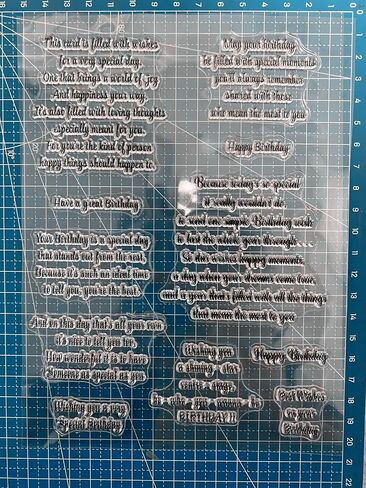 This card is filled with wishes
for a very special day.
One that brings a world of joy
And happiness your way.
It's also filled with loving thoughts
especially meant for you.
For you're the kind of person
happy things should happen to.
Have a great Birthday
Your Birthday is a special day
that stands out from the rest.
Because it's such an ideal time
to tell you, you're the best.
And on this day that's all your own
it's nice to tell you too.
How wonderful it is to have
Someone as special as you
Wishing you a very
Special Birthday
May your birthday
be filled with special moments
you'll always remember
shared with those
who mean the most to you
Happy Birthday
Because today's so special
it really wouldn't do
to send one simple Birthday wish
to last the whole year through...
So this wishes happy moments,
a day when your dreams come true,
and a year that's filled with all the things
that mean the most to you
Wishing you
a shining star
centre stage,
BIRTHDAY !!
Happy Birthday
Best Wishes
on your
Birthday
16 15 14 13 12 11 10 9 8 7 6 5 4 3 2 1 0
1
2
3
4
5
6
7
8
9
10
11
12
13
14
15
16
17
18
19
20
21
22